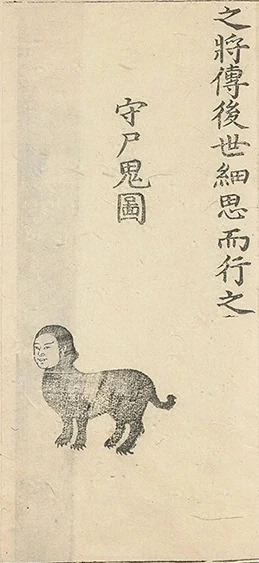 之將傳後世細思而行之
守尸鬼圖